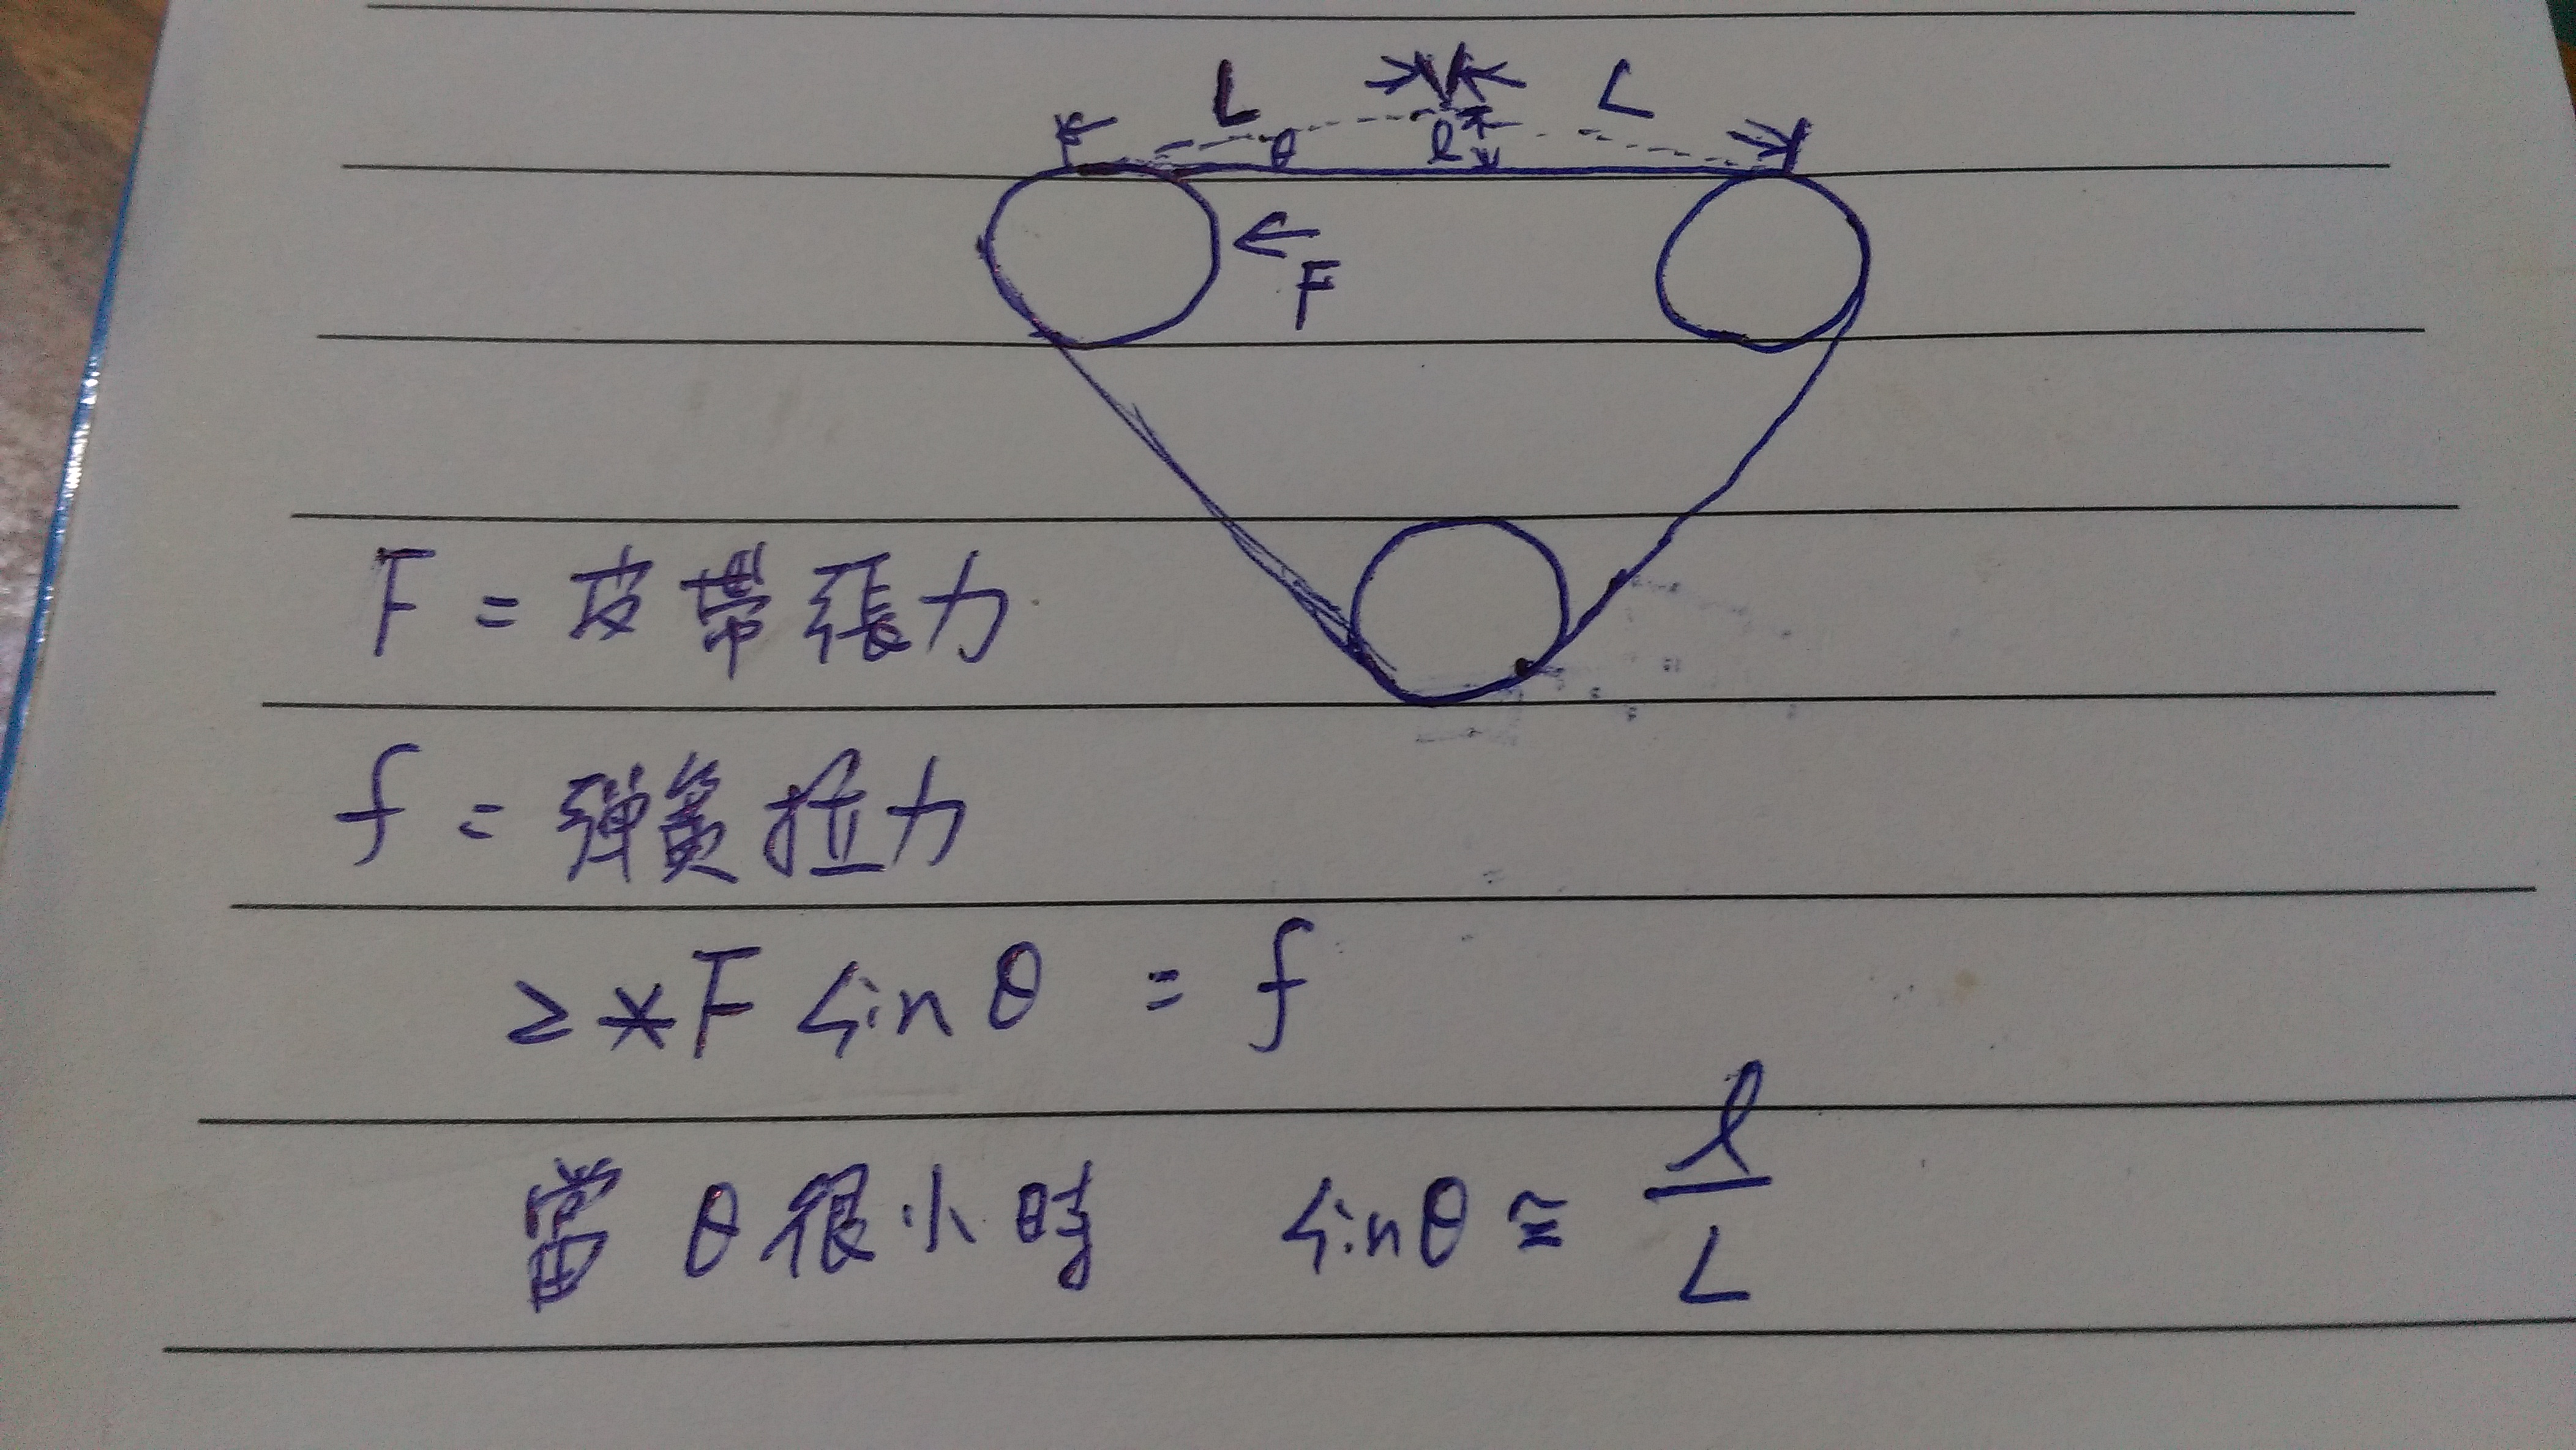 L L
θ ℓ
F
F = 皮帶張力
f = 弹簧拉力
2*F sinθ = f
當 θ 很小時 sinθ ≅ ℓ/L